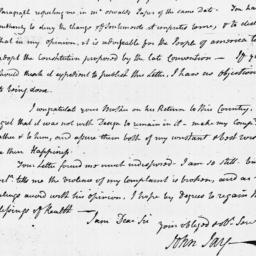 Paragraph respecting me in Mr Oswald's Paper of the same Date. You have
to deny the change of Sentiments it imputes to me, & to decl
that in my opinion, it is advisable for the People of america to
adopt the Constitution proposed by the late Convention — If y
should think it expedient to publish this Letter, I have no objection
being done.
I congratulate your Brother on his Return to this Country.
regret that it was not with design to remain in it. make my compts
& to him, and assure them both of my constant & best wis
their Happiness.
Your Letter found me much indisposed. I am so still. but
tells me the violence of my complaint is broken, and
accord with his opinion. I hope by degrees to regain
Blessings of Health —
I am Dear Sir
your obliged &
John Jay —